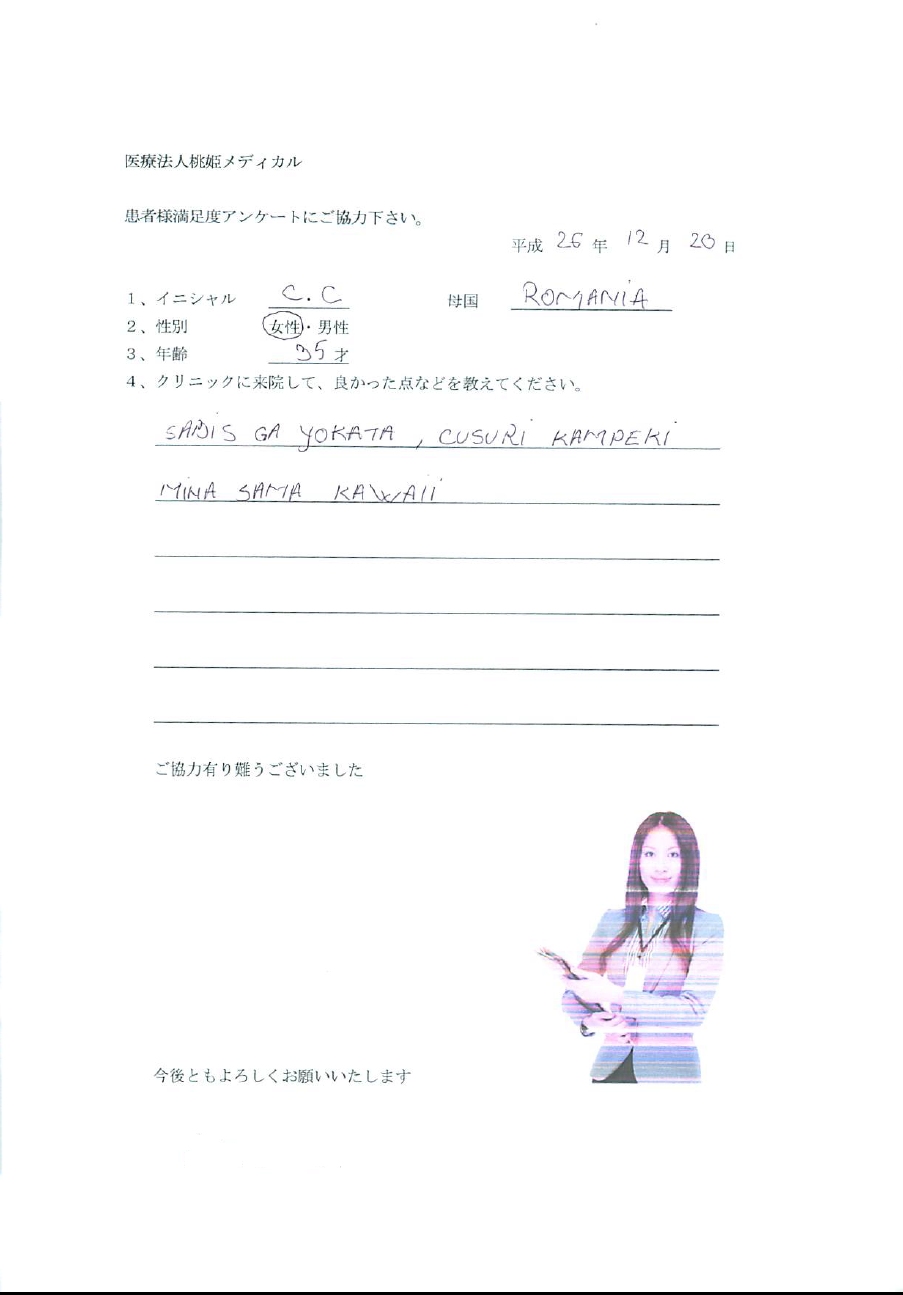 医療法人桃姫メディカル
患者様満足度アンケートにご協力下さい。
平成 26 年 12 月 20 日
1、イニシャル C.C 母国 ROMANIA
2、性別 女性・男性
3、年齢 35 才
4、クリニックに来院して、良かった点などを教えてください。
SABIS GA YOKATA , CUSURI KAMPEKI
MINA SAMA KAWAII
ご協力有り難うございました
今後ともよろしくお願いいたします